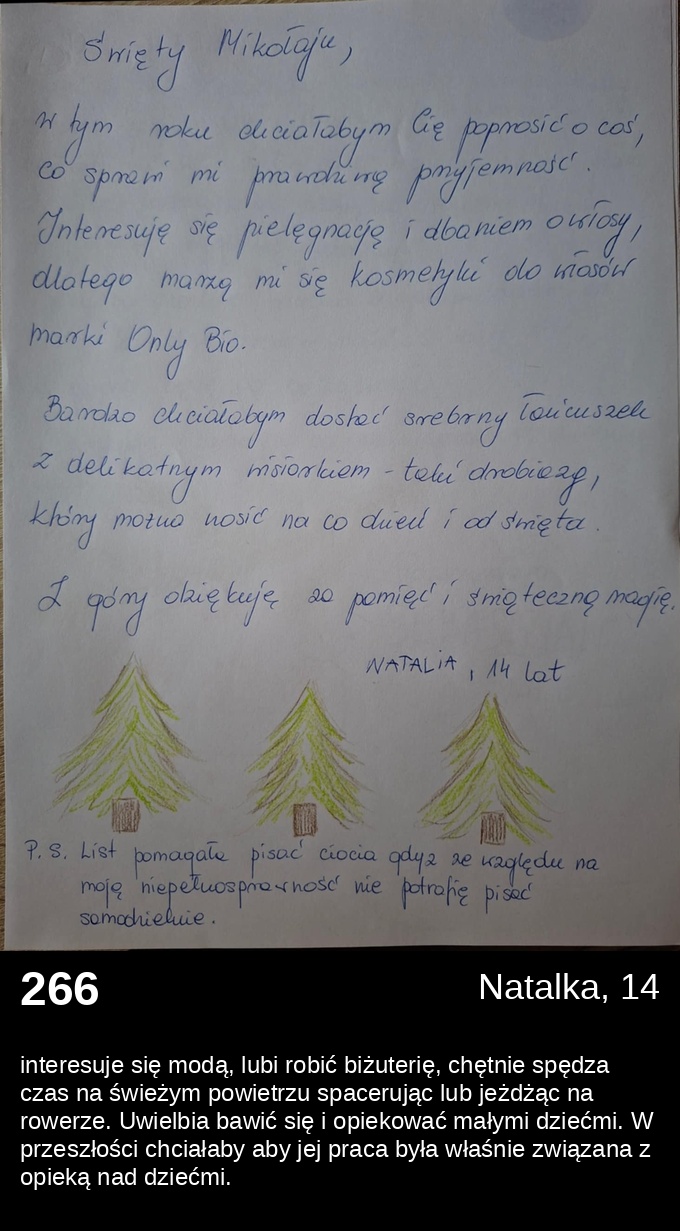 Święty Mikołaju,
w tym roku chciałabym Cię poprosić o coś,
co sprawi mi prawdziwą przyjemność.
Interesuję się pielęgnacją i dbaniem o włosy,
dlatego marzą mi się kosmetyki do włosów
marki Only Bio.
Bardzo chciałabym dostać srebrny łańcuszek
z delikatnym wisiorkiem - taki drobiazg,
który można nosić na co dzień i od święta.
Z góry dziękuję za pamięć i świąteczną magię.
NATALIA, 14 lat
P.S. List pomagała pisać ciocia gdyż ze względu na
moją niepełnosprawność nie potrafię pisać
samodzielnie.
266
Natalka, 14
interesuje się modą, lubi robić biżuterię, chętnie spędza
czas na świeżym powietrzu spacerując lub jeżdżąc na
rowerze. Uwielbia bawić się i opiekować małymi dziećmi. W
przeszłości chciałaby aby jej praca była właśnie związana z
opieką nad dziećmi.